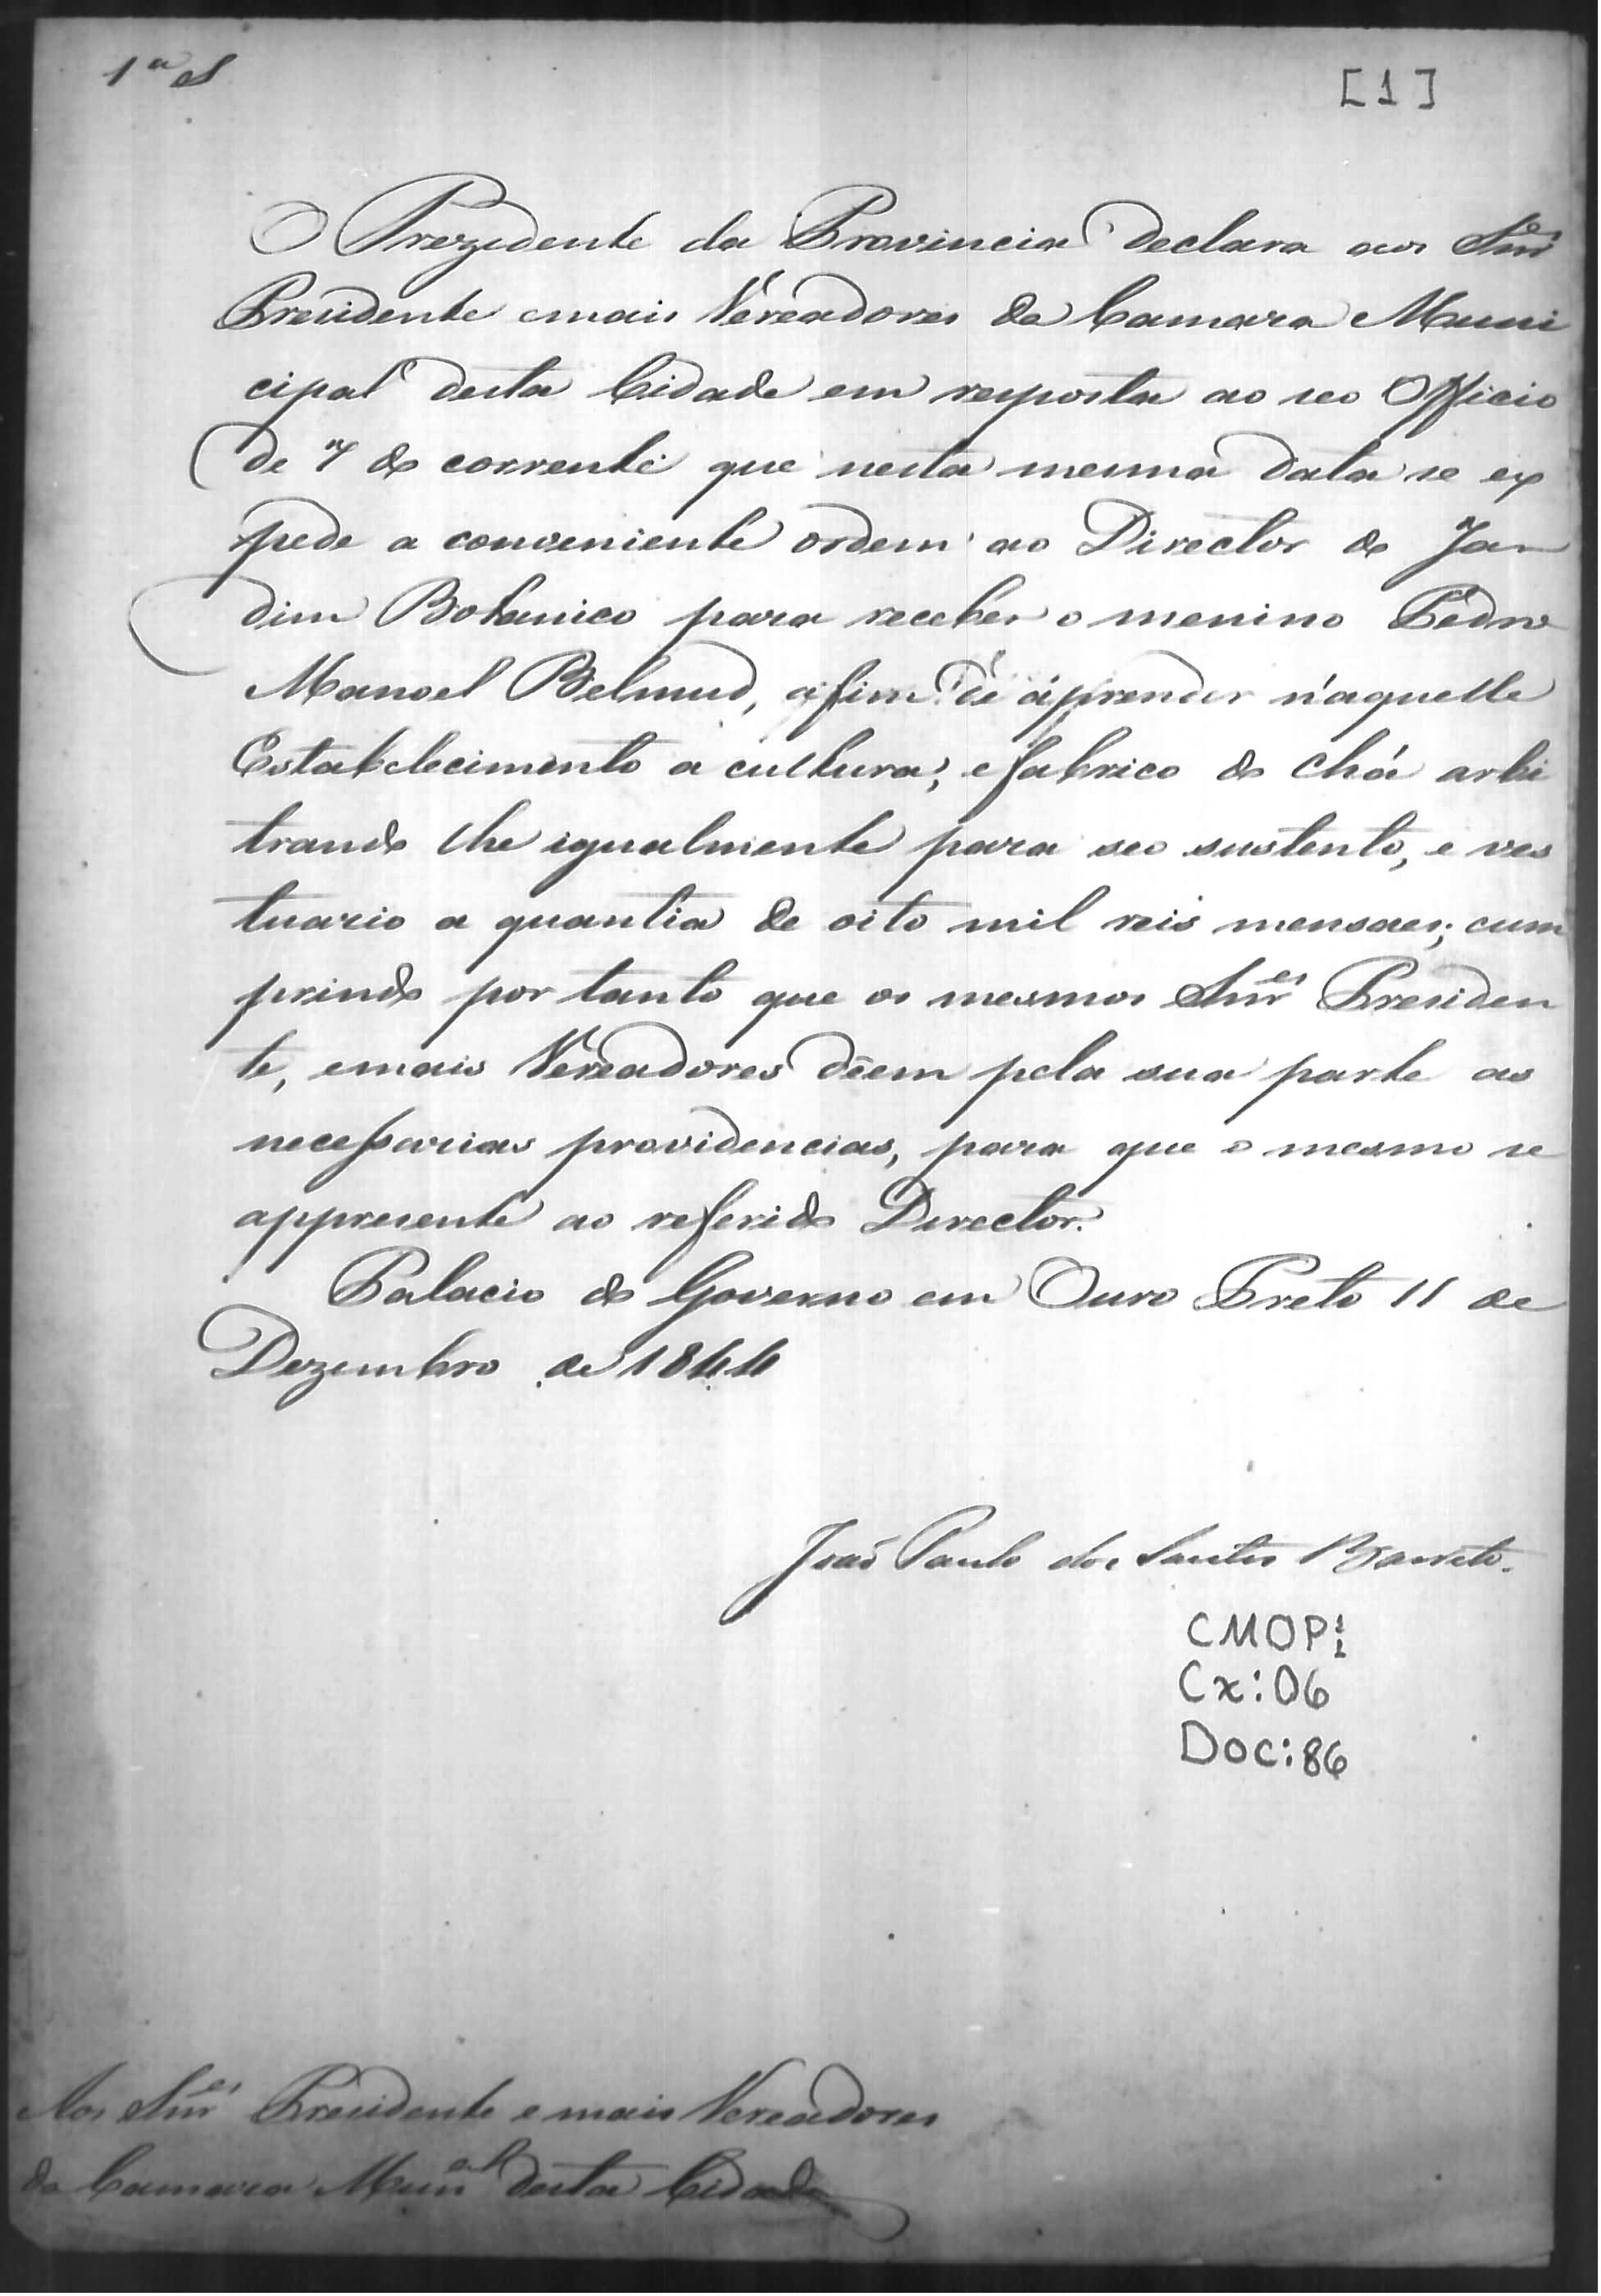 1ª S
[1]
O Prezidente da Provincia declara aos Snr.es
Presidente emais Vereadores da Camara Muni
cipal desta Cidade em resposta ao seo Officio
de 7 do corrente que nesta mesma data se ex
pede a conveniente ordem ao Director do Jar
dim Botanico para receber o menino Pedro
Manoel Belmud, afim de aprender n'aquelle
Estabelecimento a cultura, e fabrico do Chá arbi
trando lhe igualmente para seo sustento, e ves
tuario a quantia de oito mil reis mensaes; cum
prindo por tanto que os mesmos Snr.es Presiden
te, emais Vereadores dêem pela sua parte as
necessarias providencias, para que o mesmo se
appresente ao referido Director.
Palacio do Governo em Ouro Preto 11 de
Dezembro de 1844
João Paulo dos Santos Barreto.
CMOP:
Cx:06
Doc:86
Aos Snr.es Presidente e mais Vereadores
da Camara Mun.al desta Cidade